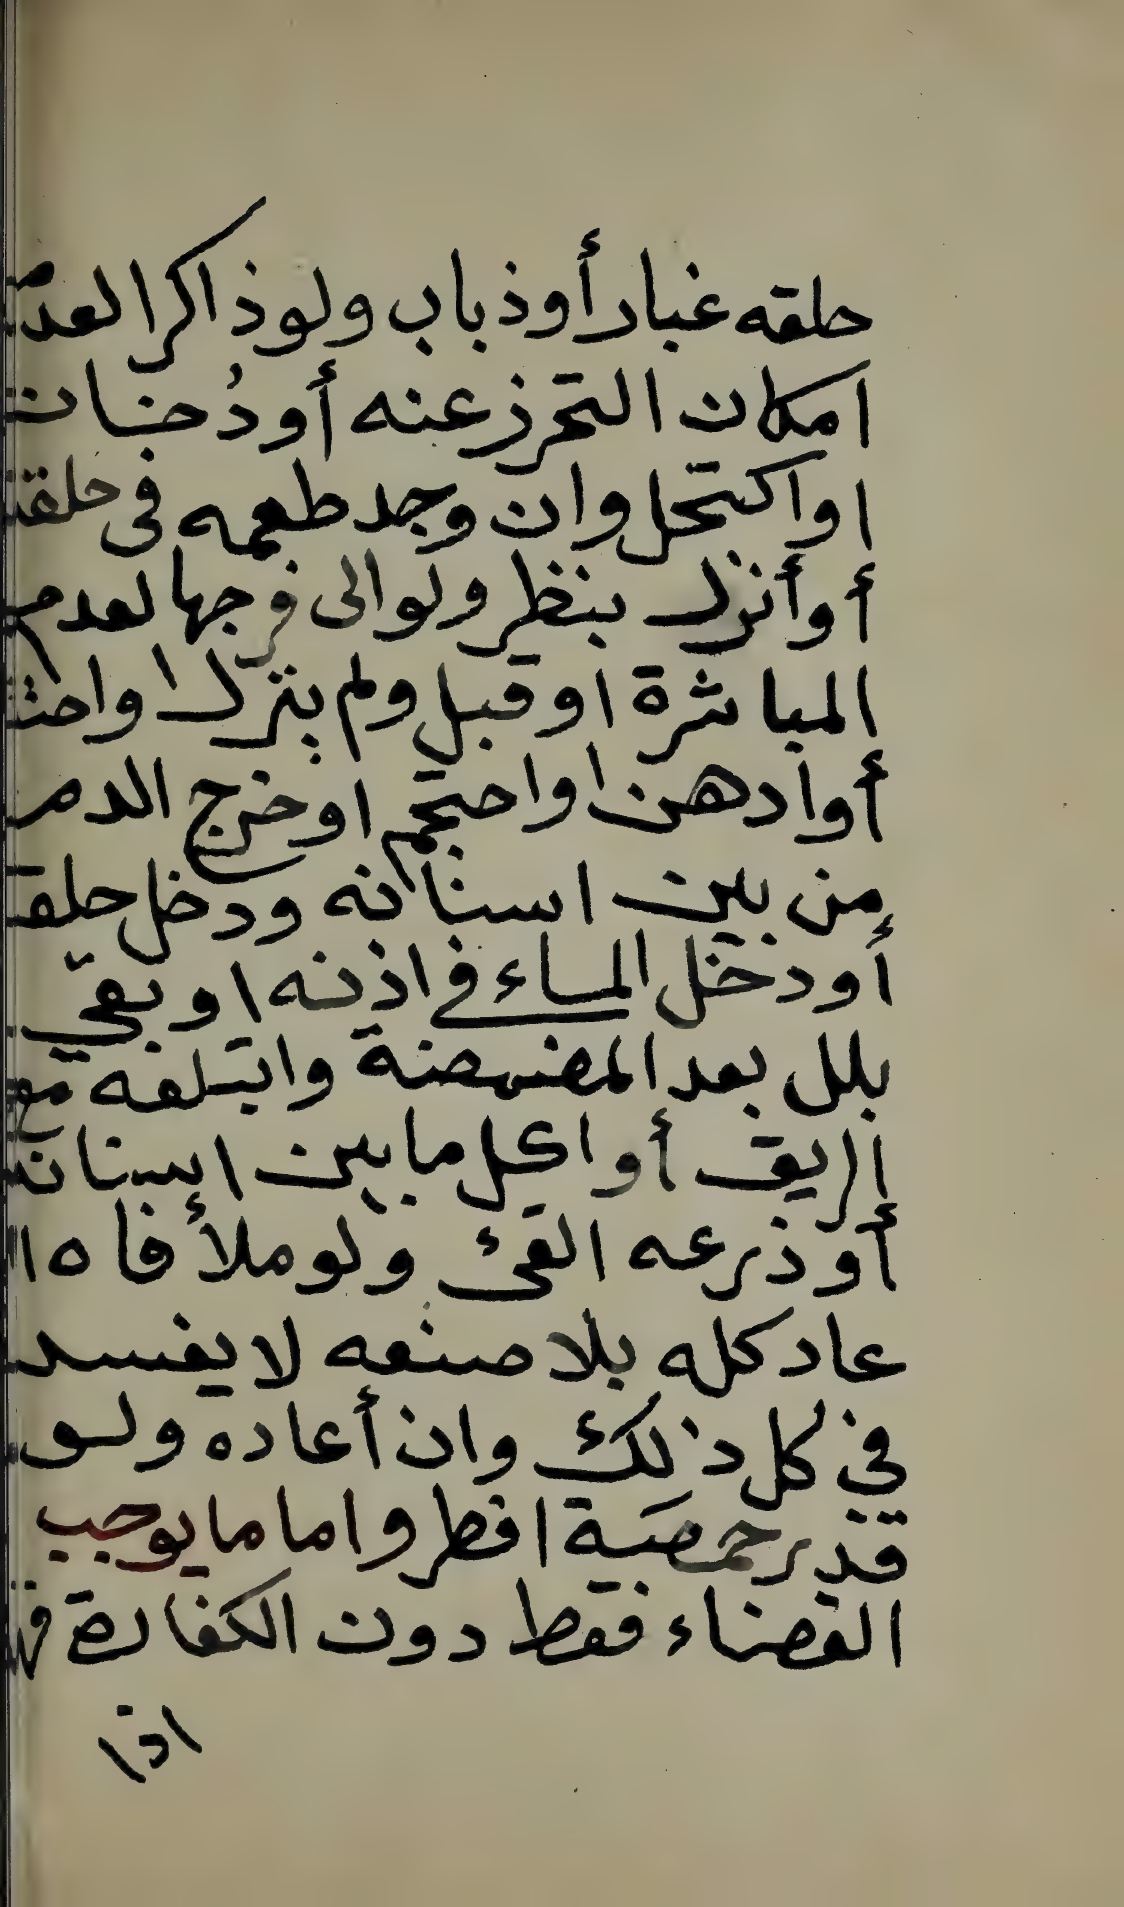 حلقه غبار أو ذباب ولو ذاكرا لعدم
امكان التحرز عنه أو دُخان
او اكتحل وان وجد طعمه فى حلقه
أو أنزل بنظر ولو الى فرجها لعدم
المباشرة او قبل ولم ينزل او احتلم
أو ادهن او احتجم او خرج الدم
من بين اسنانه ودخل حلقه
أو دخل الماء في اذنه او بقيّ
بلل بعد المضمضة وابتلعه مع
الريق أو اكل ما بين اسنانه
أو ذرعه القئ ولو ملأ فاه
عاد كله بلا صنعه لا يفسد
في كل ذلك وان أعاده ولو
قدر حمصة افطر واما ما يوجب
القضاء فقط دون الكفارة
اذا